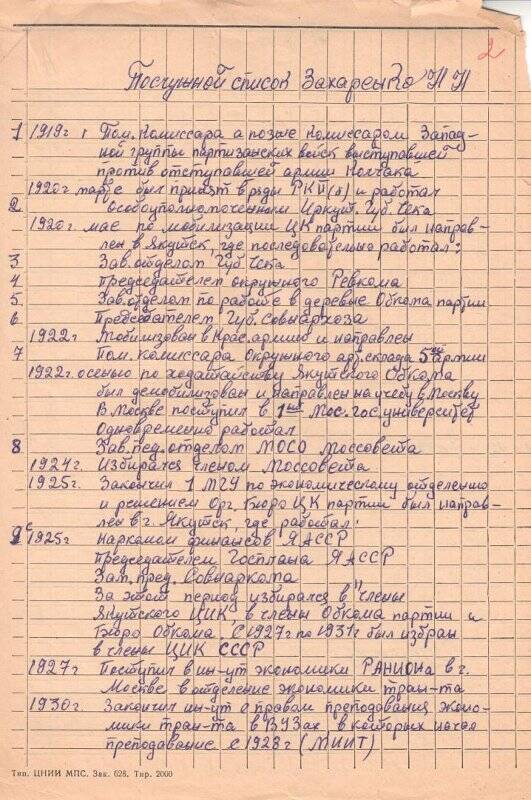 2
Послужной список Захаренко Н Н
1 1919г. Пом. Комиссара а позже Комиссаром Запад-
ной группы партизанских войск выступавшей
против отступавшей армии Колчака
1920г марте был принят в ряды РКП(б) и работал
2 Особоуполномоченным Иркут. Губ. Чека
1920г. мае по мобилизации ЦК партии был направ-
лен в Якутск, где последовательно работал:
3 Зав. отделом Губ. Чека
4 Председателем окружного Ревкома
5 Зав. отделом по работе в деревне Обкома партии
6 Председателем Губ. Совнархоза
1922г Мобилизован в Крас. армию и направлен
7 Пом. комиссара Окружного арт. склада 5ой Армии
1922г. осенью по ходатайству Якутского Обкома
был демобилизован и направлен на учебу в Москву
В Москве поступил в 1ый Мос. гос. университет
Одновременно работал
8 Зав. пед. отделом МОСО Моссовета
1924г. Избирался членом Моссовета
1925г. Закончил 1 МГУ по экономическому отделению
и решением Орг. Бюро ЦК партии был направ-
лен в г. Якутск, где работал:
9 с 1925г Наркомом финансов ЯАССР
Председателем Госплана ЯАССР
Зам. пред. Совнаркома
За этот период избирался в члены
Якутского ЦИК, в члены Обкома партии и
Бюро Обкома. С 1927г по 1931г был избран
в члены ЦИК СССР
1927г Поступил в ин-ут экономики РАНИОНа в г.
Москве в отделение экономики тран-та
1930г. Закончил ин-ут с правом преподавания эконо-
мики тран-та в ВУЗах в которых начал
преподавание с 1928г (МИИТ)
Тип. ЦНИИ МПС. Зак. 628. Тир. 2000